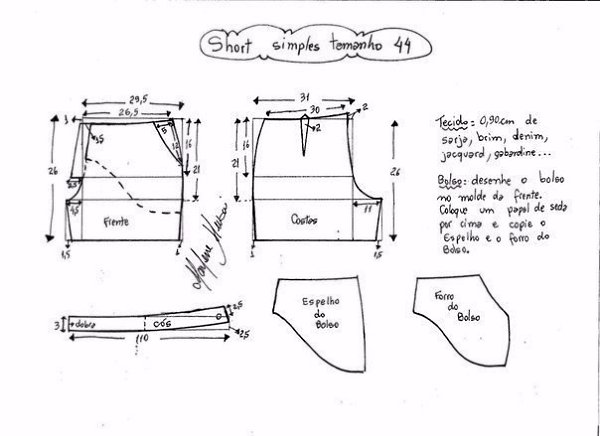 Short simples tamanho 44
29,5
26,5
1
3,5
5
12
16
21
26
3,5
4,5
Frente
1,5
1
31
30
2
2
16
21
26
11
Costas
1
1,5
Tecido: 0,90cm de
sarja, brim, denim,
jacquard, gabardine...
Bolso: desenhe o bolso
no molde da frente.
Coloque um papel de seda
por cima e copie o
Espelho e o forro do
Bolso.
3
dobra
cós
110
2,5
2,5
Espelho
do
Bolso
Forro
do
Bolso